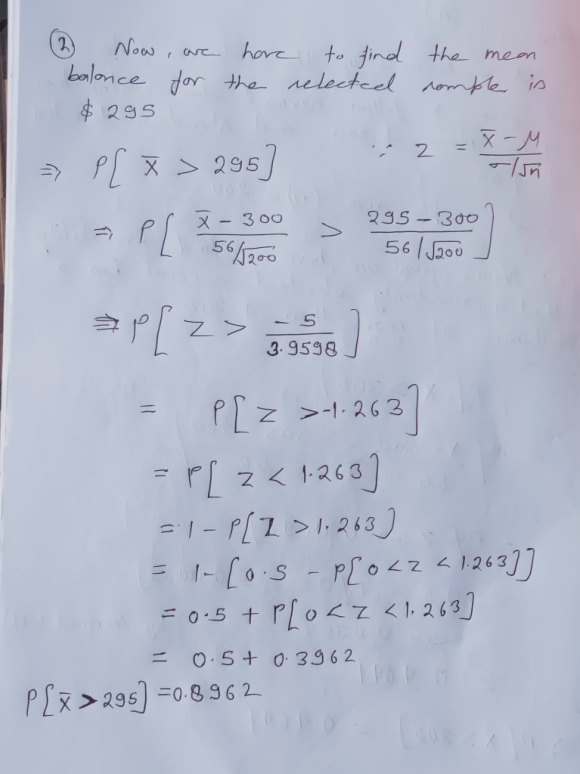 ② Now, we have to find the mean
balance for the selected sample is
$ 295
⇒ P[ x̄ > 295] ∵ z = (x̄ - μ)/(σ/√n)
⇒ P[ (x̄ - 300)/(56/√200) > (295 - 300)/(56/√200) ]
⇒ P[ Z > (-5)/(3.9598) ]
= P[ Z > -1.263]
= P[ Z < 1.263]
= 1 - P[Z > 1.263)
= 1 - [0.5 - P[0 < Z < 1.263]]
= 0.5 + P[0 < Z < 1.263]
= 0.5 + 0.3962
P[x̄ > 295] = 0.8962